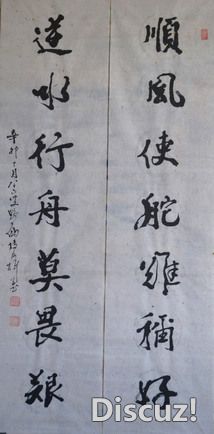 順風使舵雖稱好
逆水行舟莫畏艱
辛卯
Discuz!